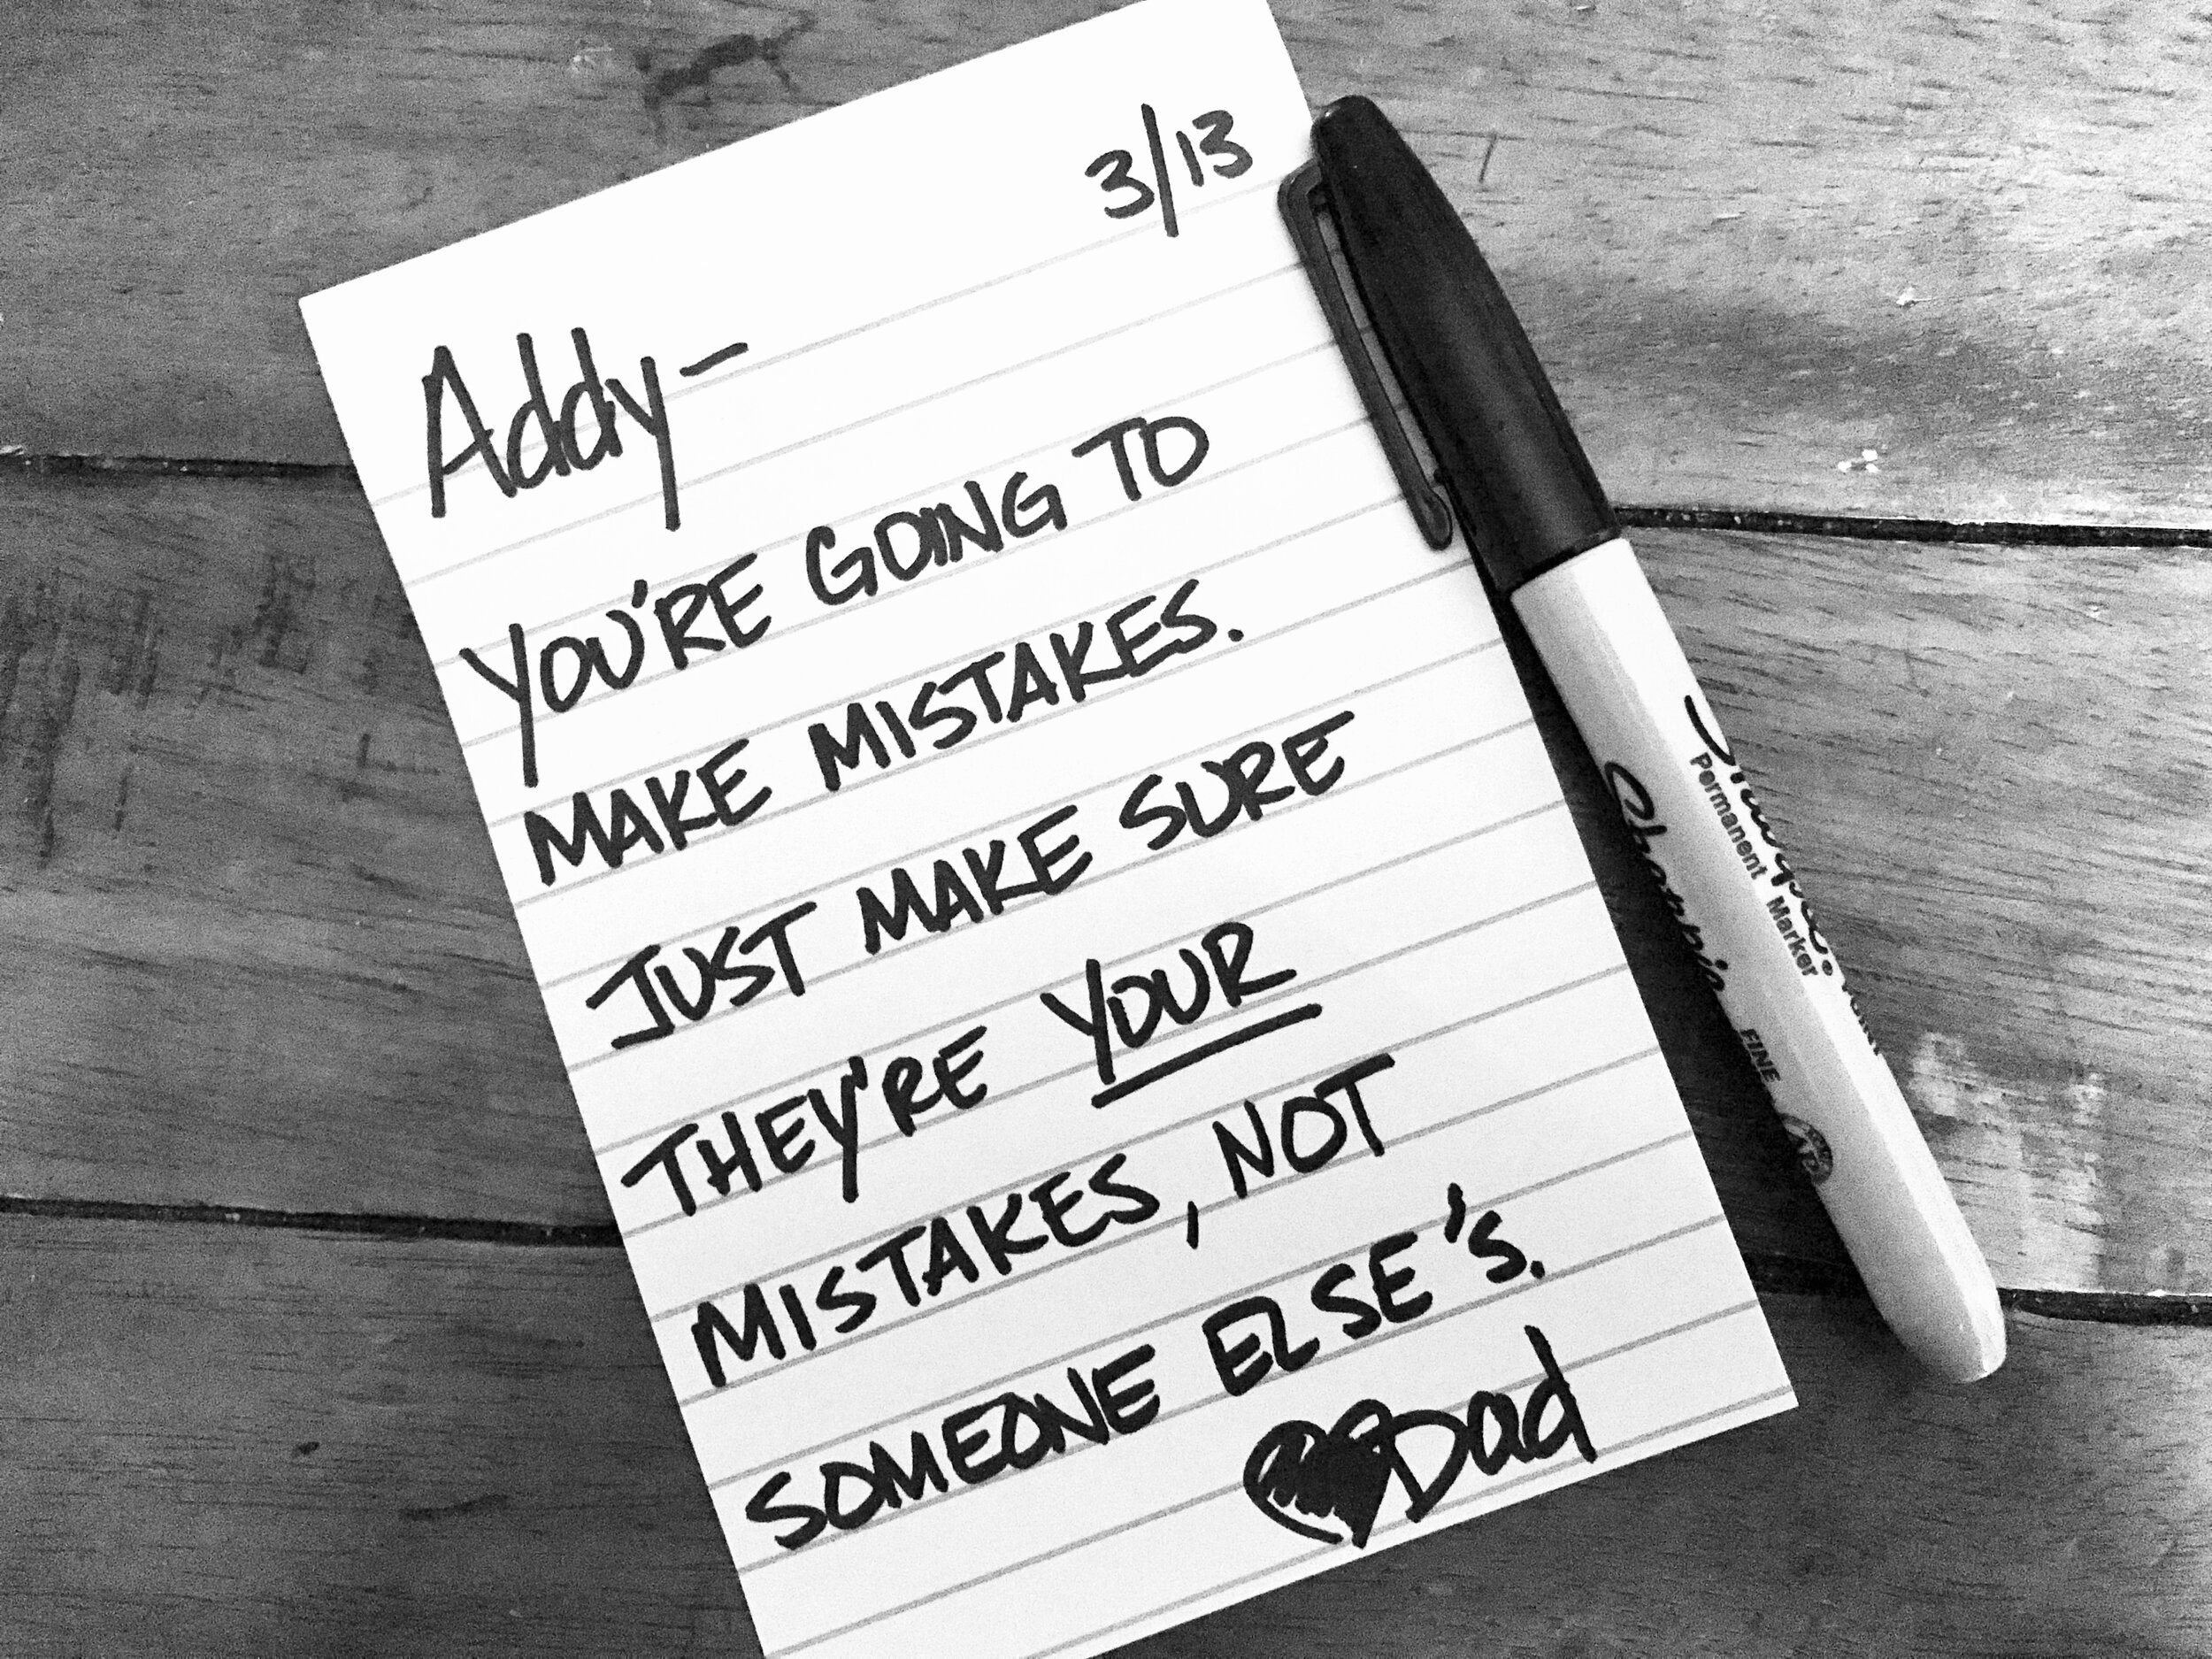 3/13
Addy-
YOU'RE GOING TO
MAKE MISTAKES.
JUST MAKE SURE
THEY'RE YOUR
MISTAKES, NOT
SOMEONE ELSE'S.
♥Dad
Sharpie.
Permanent Marker
Sharpie
FINE
AP